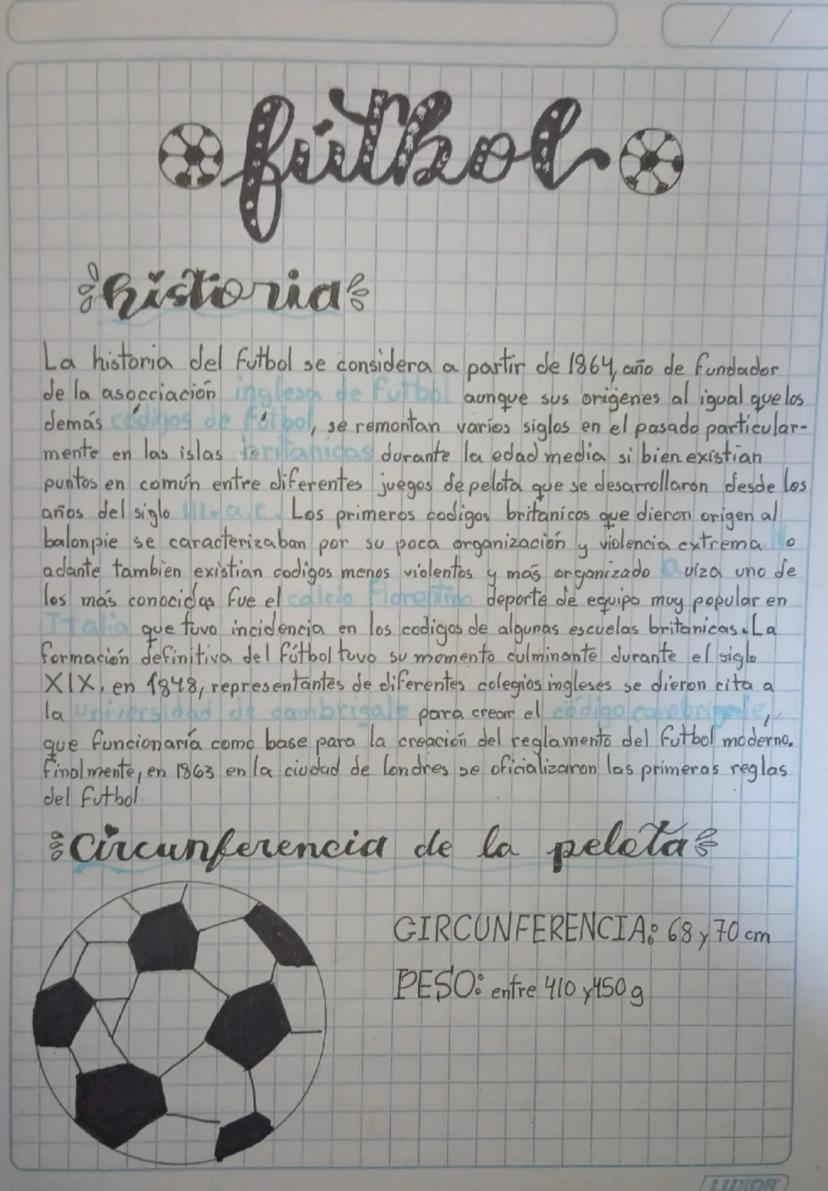 fútbol
historia
La historia del futbol se considera a partir de 1864, año de fundador
de la asocciación inglesa de futbol aunque sus orígenes al igual que los
demás códigos de fútbol, se remontan varios siglos en el pasado particular-
mente en las islas britanicas durante la edad media si bien existian
puntos en común entre diferentes juegos de pelota que se desarrollaron desde los
años del siglo III.a.C. Los primeros codigos britanicos que dieron origen al
balonpie se caracterizaban por su poca organización y violencia extrema No
adante tambien existian codigos menos violentos y más organizado uiza uno de
los más conocidos fue el calcio Florentino deporte de equipo muy popular en
Italia que tuvo incidencia en los codigos de algunas escuelas britanicas. La
formación definitiva del fútbol tuvo su momento culminante durante el siglo
XIX, en 1848, representantes de diferentes colegios ingleses se dieron cita a
la universidad de cambrigale para crear el código cambrigale,
que funcionaría como base para la creación del reglamento del futbol moderno.
Finalmente, en 1863 en la ciudad de londres se oficializaron las primeras reglas
del futbol
circunferencia de la pelota
CIRCUNFERENCIA: 68 y 70 cm
PESO: entre 410 y 450 g